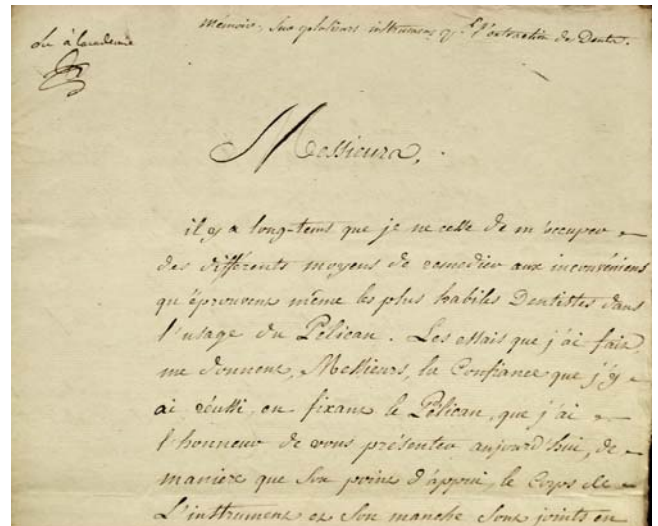 Lu à lacademie
Mémoire, Sur plusieurs instrumens pr. l'extraction de Dents.
Messieurs,
il y a long-tems que je ne cesse de m'occuper
des différents moyens de remedier aux inconvéniens
qu'éprouvent même les plus habiles Dentistes dans
l'usage du Pélican. Les essais que j'ai fait
me donnent, Messieurs, la Confiance que j'y
ai réussi, en fixant le Pélican, que j'ai
l'honneur de vous présenter aujourd'hui, de
maniere que son point d'appui, le Corps de
L'instrument et son manche sont joints en